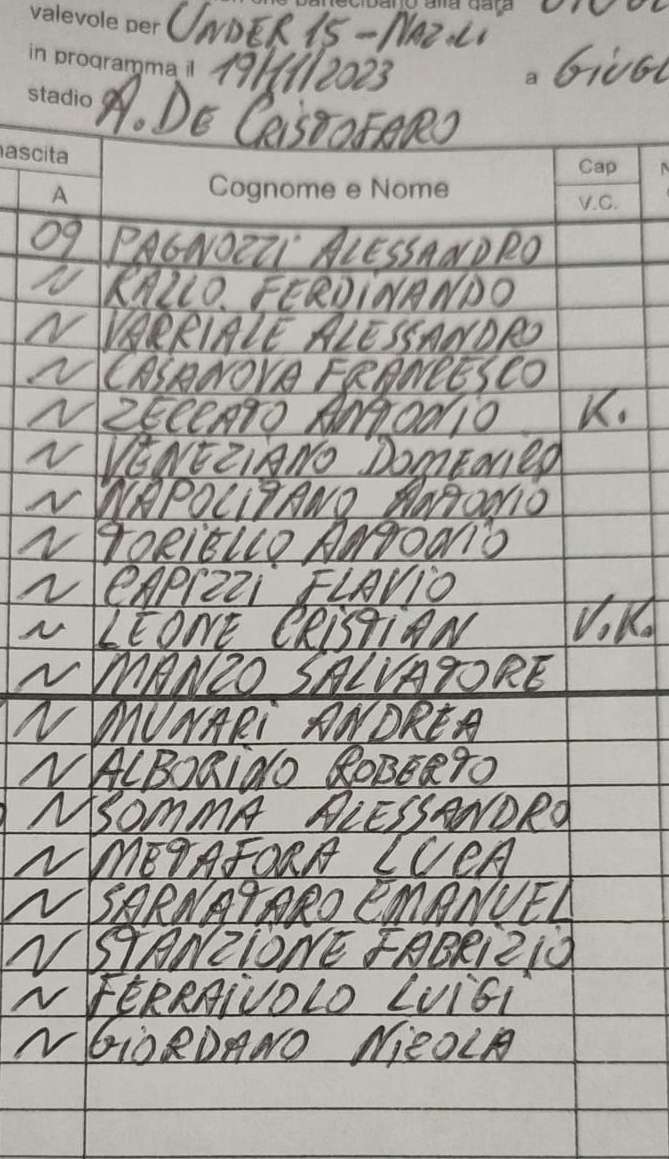 valevole per UNDER 15 - NAZ.LI
in programma il 19/11/2023 a GIUGL
stadio A. DE CRISTOFARO
nascita
A Cognome e Nome Cap V.C.
09 PAGNOZZI ALESSANDRO
N RALLO FERDINANDO
N VARRIALE ALESSANDRO
N CASANOVA FRANCESCO
N ZECCATO ANTONIO K.
N VENEZIANO DOMENICO
N NAPOLITANO ANTONIO
N TORIELLO ANTONIO
N CAPIZZI FLAVIO
N LEONE CRISTIAN V.K.
N MANZO SALVATORE
N MUNARI ANDREA
N ALBORINO ROBERTO
N SOMMA ALESSANDRO
N METAFORA LUCA
N SARNATARO EMANUEL
N STANZIONE FABRIZIO
N FERRAIUOLO LUIGI
N GIORDANO NICOLA